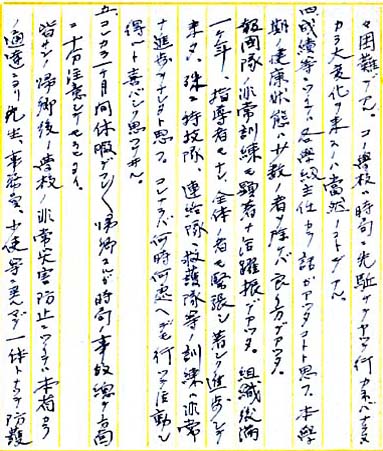 々困難デアル。コノ學校ハ時局ニ先駈ケヲヤツテ行カネバナラヌ
カラ大変化ヲ来スハ當然ノコトデアル。
四、成績等ニツイテハ各學級主任カラ話ガアツタコトト思フ。本學
期ノ健康状態ハ少数ノ者ヲ除ケバ良イ方デアツタ。
報國隊ノ非常訓練モ顕著ナ活躍振デアツタ。組織後満
一ケ年、指導者モナク、全体ノ者モ緊張シ著シク進歩シテ
来タ。殊ニ特技隊、連絡隊、救護隊等ノ訓練ハ非常
ナ進歩ヲナシタト思フ。コレナラバ何時何處ヘデモ行ツテ活動シ
得ルト喜バシク思フ次第。
五、コレカラ一ケ月間休暇デアル、帰郷スルガ時局ノ事故総ケ方面
ニ十分注意シテモラヒタイ。
皆サンノ帰郷後ノ學校ノ非常災害防止ニツイテハ本省カラ
ノ通達ニヨリ先生、事務員、小使等ニ至ルマデ一体トナツテ防護